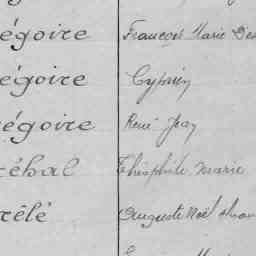 égoire François Marie
égoire Cyprien
égoire René Jean
éhal Théophile Marie
rêlé Auguste Noël